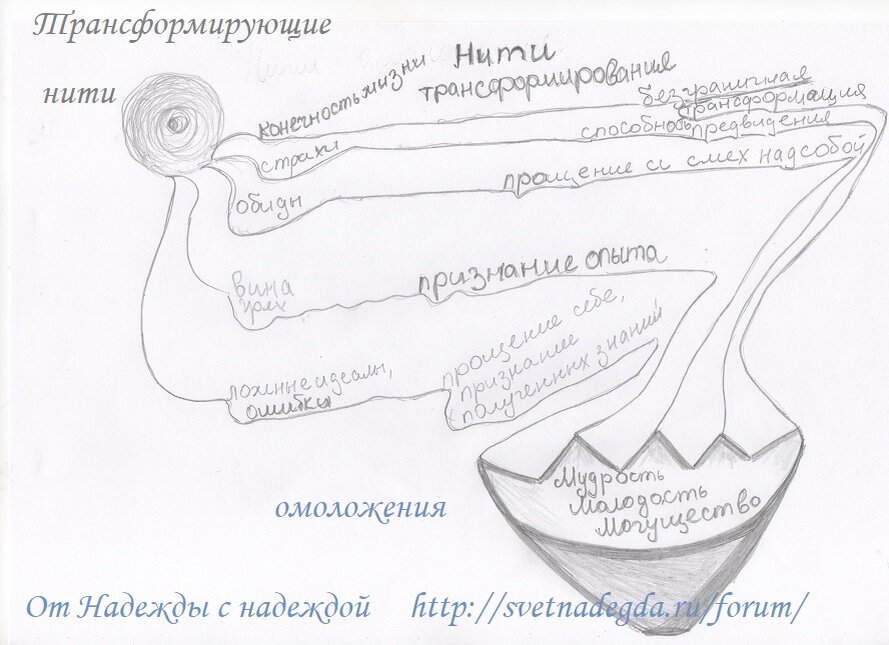 Трансформирующие
нити
Нити
трансформирования
конечность жизни
безграничная
трансформация
страхи
способность предвидения
обиды
прощение и смех над собой
вина
грех
признание опыта
ложные идеалы,
ошибки
прощение себе,
признание
полученных знаний
Мудрость
Молодость
Могущество
омоложения
От Надежды с надеждой http://svetnadegda.ru/forum/